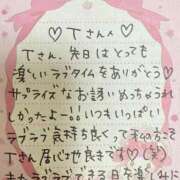 ♡Tさんへ
Tさん、先日はとっても
楽しいラブタイムをありがとう♡
サプライズなお誘いめっちゃうれ
しかったよー!!いつもいっぱい
ラブラブ気持ち良くって私の方こそ
Tさん居心地良きです♡(笑)
またラブラブできる日を楽しみに